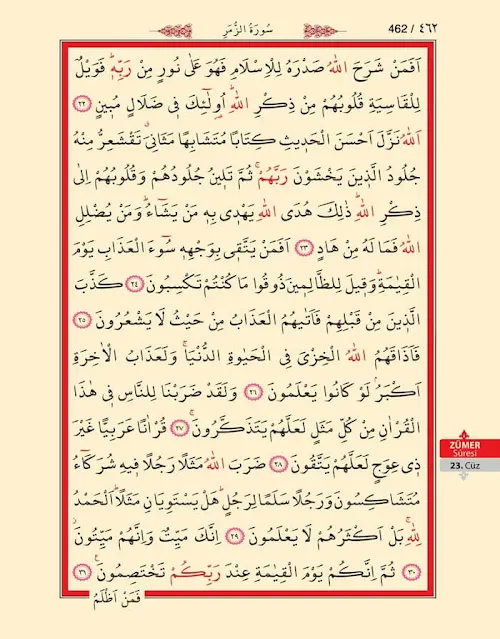 462 / ٤٦٢
سُورَةُ الزُّمَرِ
اَفَمَنْ شَرَحَ اللّٰهُ صَدْرَهُ لِلْاِسْلَامِ فَهُوَ عَلٰى نُورٍ مِنْ رَبِّه۪ۜ فَوَيْلٌ
لِلْقَاسِيَةِ قُلُوبُهُمْ مِنْ ذِكْرِ اللّٰهِۜ اُو۬لٰٓئِكَ ف۪ي ضَلَالٍ مُب۪ينٍ ٢٢
اَللّٰهُ نَزَّلَ اَحْسَنَ الْحَد۪يثِ كِتَابًا مُتَشَابِهًا مَثَانِيَۗ تَقْشَعِرُّ مِنْهُ
جُلُودُ الَّذ۪ينَ يَخْشَوْنَ رَبَّهُمْۚ ثُمَّ تَل۪ينُ جُلُودُهُمْ وَقُلُوبُهُمْ اِلٰى
ذِكْرِ اللّٰهِۜ ذٰلِكَ هُدَى اللّٰهِ يَهْد۪ي بِه۪ مَنْ يَشَٓاءُۜ وَمَنْ يُضْلِلِ
اللّٰهُ فَمَا لَهُ مِنْ هَادٍ ٢٣ اَفَمَنْ يَتَّق۪ي بِوَجْهِه۪ سُٓوءَ الْعَذَابِ يَوْمَ
الْقِيٰمَةِۜ وَق۪يلَ لِلظَّالِم۪ينَ ذُوقُوا مَا كُنْتُمْ تَكْسِبُونَ ٢٤ كَذَّبَ
الَّذ۪ينَ مِنْ قَبْلِهِمْ فَاَتٰيهُمُ الْعَذَابُ مِنْ حَيْثُ لَا يَشْعُرُونَ ٢٥
فَاَذَاقَهُمُ اللّٰهُ الْخِزْيَ فِي الْحَيٰوةِ الدُّنْيَاۚ وَلَعَذَابُ الْاٰخِرَةِ
اَكْبَرُۢ لَوْ كَانُوا يَعْلَمُونَ ٢٦ وَلَقَدْ ضَرَبْنَا لِلنَّاسِ ف۪ي هٰذَا
الْقُرْاٰنِ مِنْ كُلِّ مَثَلٍ لَعَلَّهُمْ يَتَذَكَّرُونَۚ ٢٧ قُرْاٰنًا عَرَبِيًّا غَيْرَ
ذ۪ي عِوَجٍ لَعَلَّهُمْ يَتَّقُونَ ٢٨ ضَرَبَ اللّٰهُ مَثَلًا رَجُلًا ف۪يهِ شُرَكَٓاءُ
مُتَشَاكِسُونَ وَرَجُلًا سَلَمًا لِرَجُلٍۜ هَلْ يَسْتَوِيَانِ مَثَلًاۜ اَلْحَمْدُ
لِلّٰهِۚ بَلْ اَكْثَرُهُمْ لَا يَعْلَمُونَ ٢٩ اِنَّكَ مَيِّتٌ وَاِنَّهُمْ مَيِّتُونَۘ
٣٠ ثُمَّ اِنَّكُمْ يَوْمَ الْقِيٰمَةِ عِنْدَ رَبِّكُمْ تَخْتَصِمُونَ۟ ٣١
فَمَنْ اَظْلَمُ
ZÜMER
Sûresi
23. Cüz